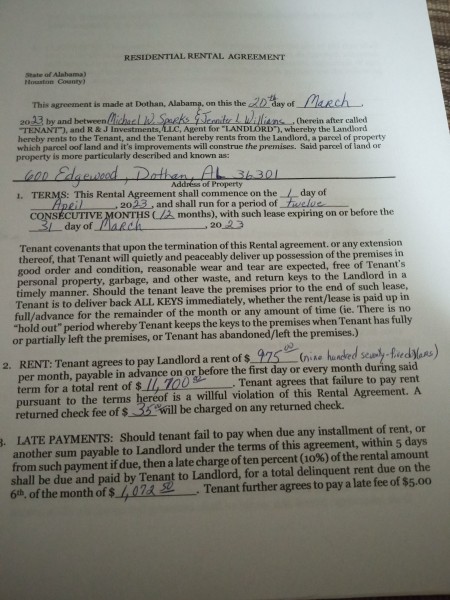 RESIDENTIAL RENTAL AGREEMENT
State of Alabama)
Houston County)
This agreement is made at Dothan, Alabama, on this the 20th day of March,
2023 by and between Michael W. Sparks & Jennifer L. Williams, (herein after called
"TENANT"), and R & J Investments, LLC, Agent for "LANDLORD"), whereby the Landlord
hereby rents to the Tenant, and the Tenant hereby rents from the Landlord, a parcel of property
which parcel oof land and it's improvements will construe the premises. Said parcel of land or
property is more particularly described and known as:
600 Edgewood, Dothan, AL 36301
Address of Property
1. TERMS: This Rental Agreement shall commence on the 1 day of
April, 2023, and shall run for a period of twelve
CONSECUTIVE MONTHS (12 months), with such lease expiring on or before the
31 day of March, 2023
Tenant covenants that upon the termination of this Rental agreement. or any extension
thereof, that Tenant will quietly and peaceably deliver up possession of the premises in
good order and condition, reasonable wear and tear are expected, free of Tenant's
personal property, garbage, and other waste, and return keys to the Landlord in a
timely manner. Should the tenant leave the premises prior to the end of such lease,
Tenant is to deliver back ALL KEYS immediately, whether the rent/lease is paid up in
full/advance for the remainder of the month or any period of time (ie. There is no
"hold out" period whereby Tenant keeps the keys to the premises when Tenant has fully
or partially left the premises, or Tenant has abandoned/left the premises.)
2. RENT: Tenant agrees to pay Landlord a rent of $ 975 00 (nine hundred seventy-five dollars)
per month, payable in advance on or before the first day or every month during said
term for a total rent of $ 11,700 00. Tenant agrees that failure to pay rent
pursuant to the terms hereof is a willful violation of this Rental Agreement. A
returned check fee of $ 35 00 will be charged on any returned check.
3. LATE PAYMENTS: Should tenant fail to pay when due any installment of rent, or
another sum payable to Landlord under the terms of this agreement, within 5 days
from such payment if due, then a late charge of ten percent (10%) of the rental amount
shall be due and paid by Tenant to Landlord, for a total delinquent rent due on the
6th, of the month of $ 1,072 50. Tenant further agrees to pay a late fee of $5.00